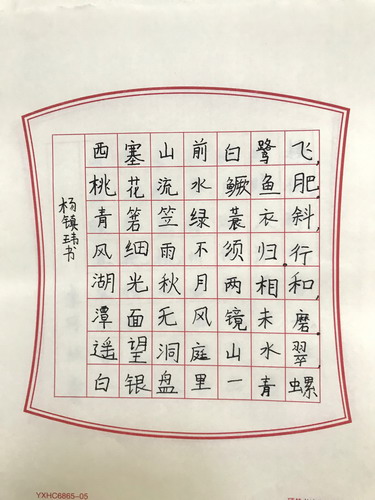 西塞山前白鹭飞,
桃花流水鳜鱼肥.
青箬笠绿蓑衣斜,
风细雨不须归.行
湖光秋月两相和,
潭面无风镜未磨.
遥望洞庭山水翠,
白银盘里一青螺
杨镇玮书
YXHC6865-05